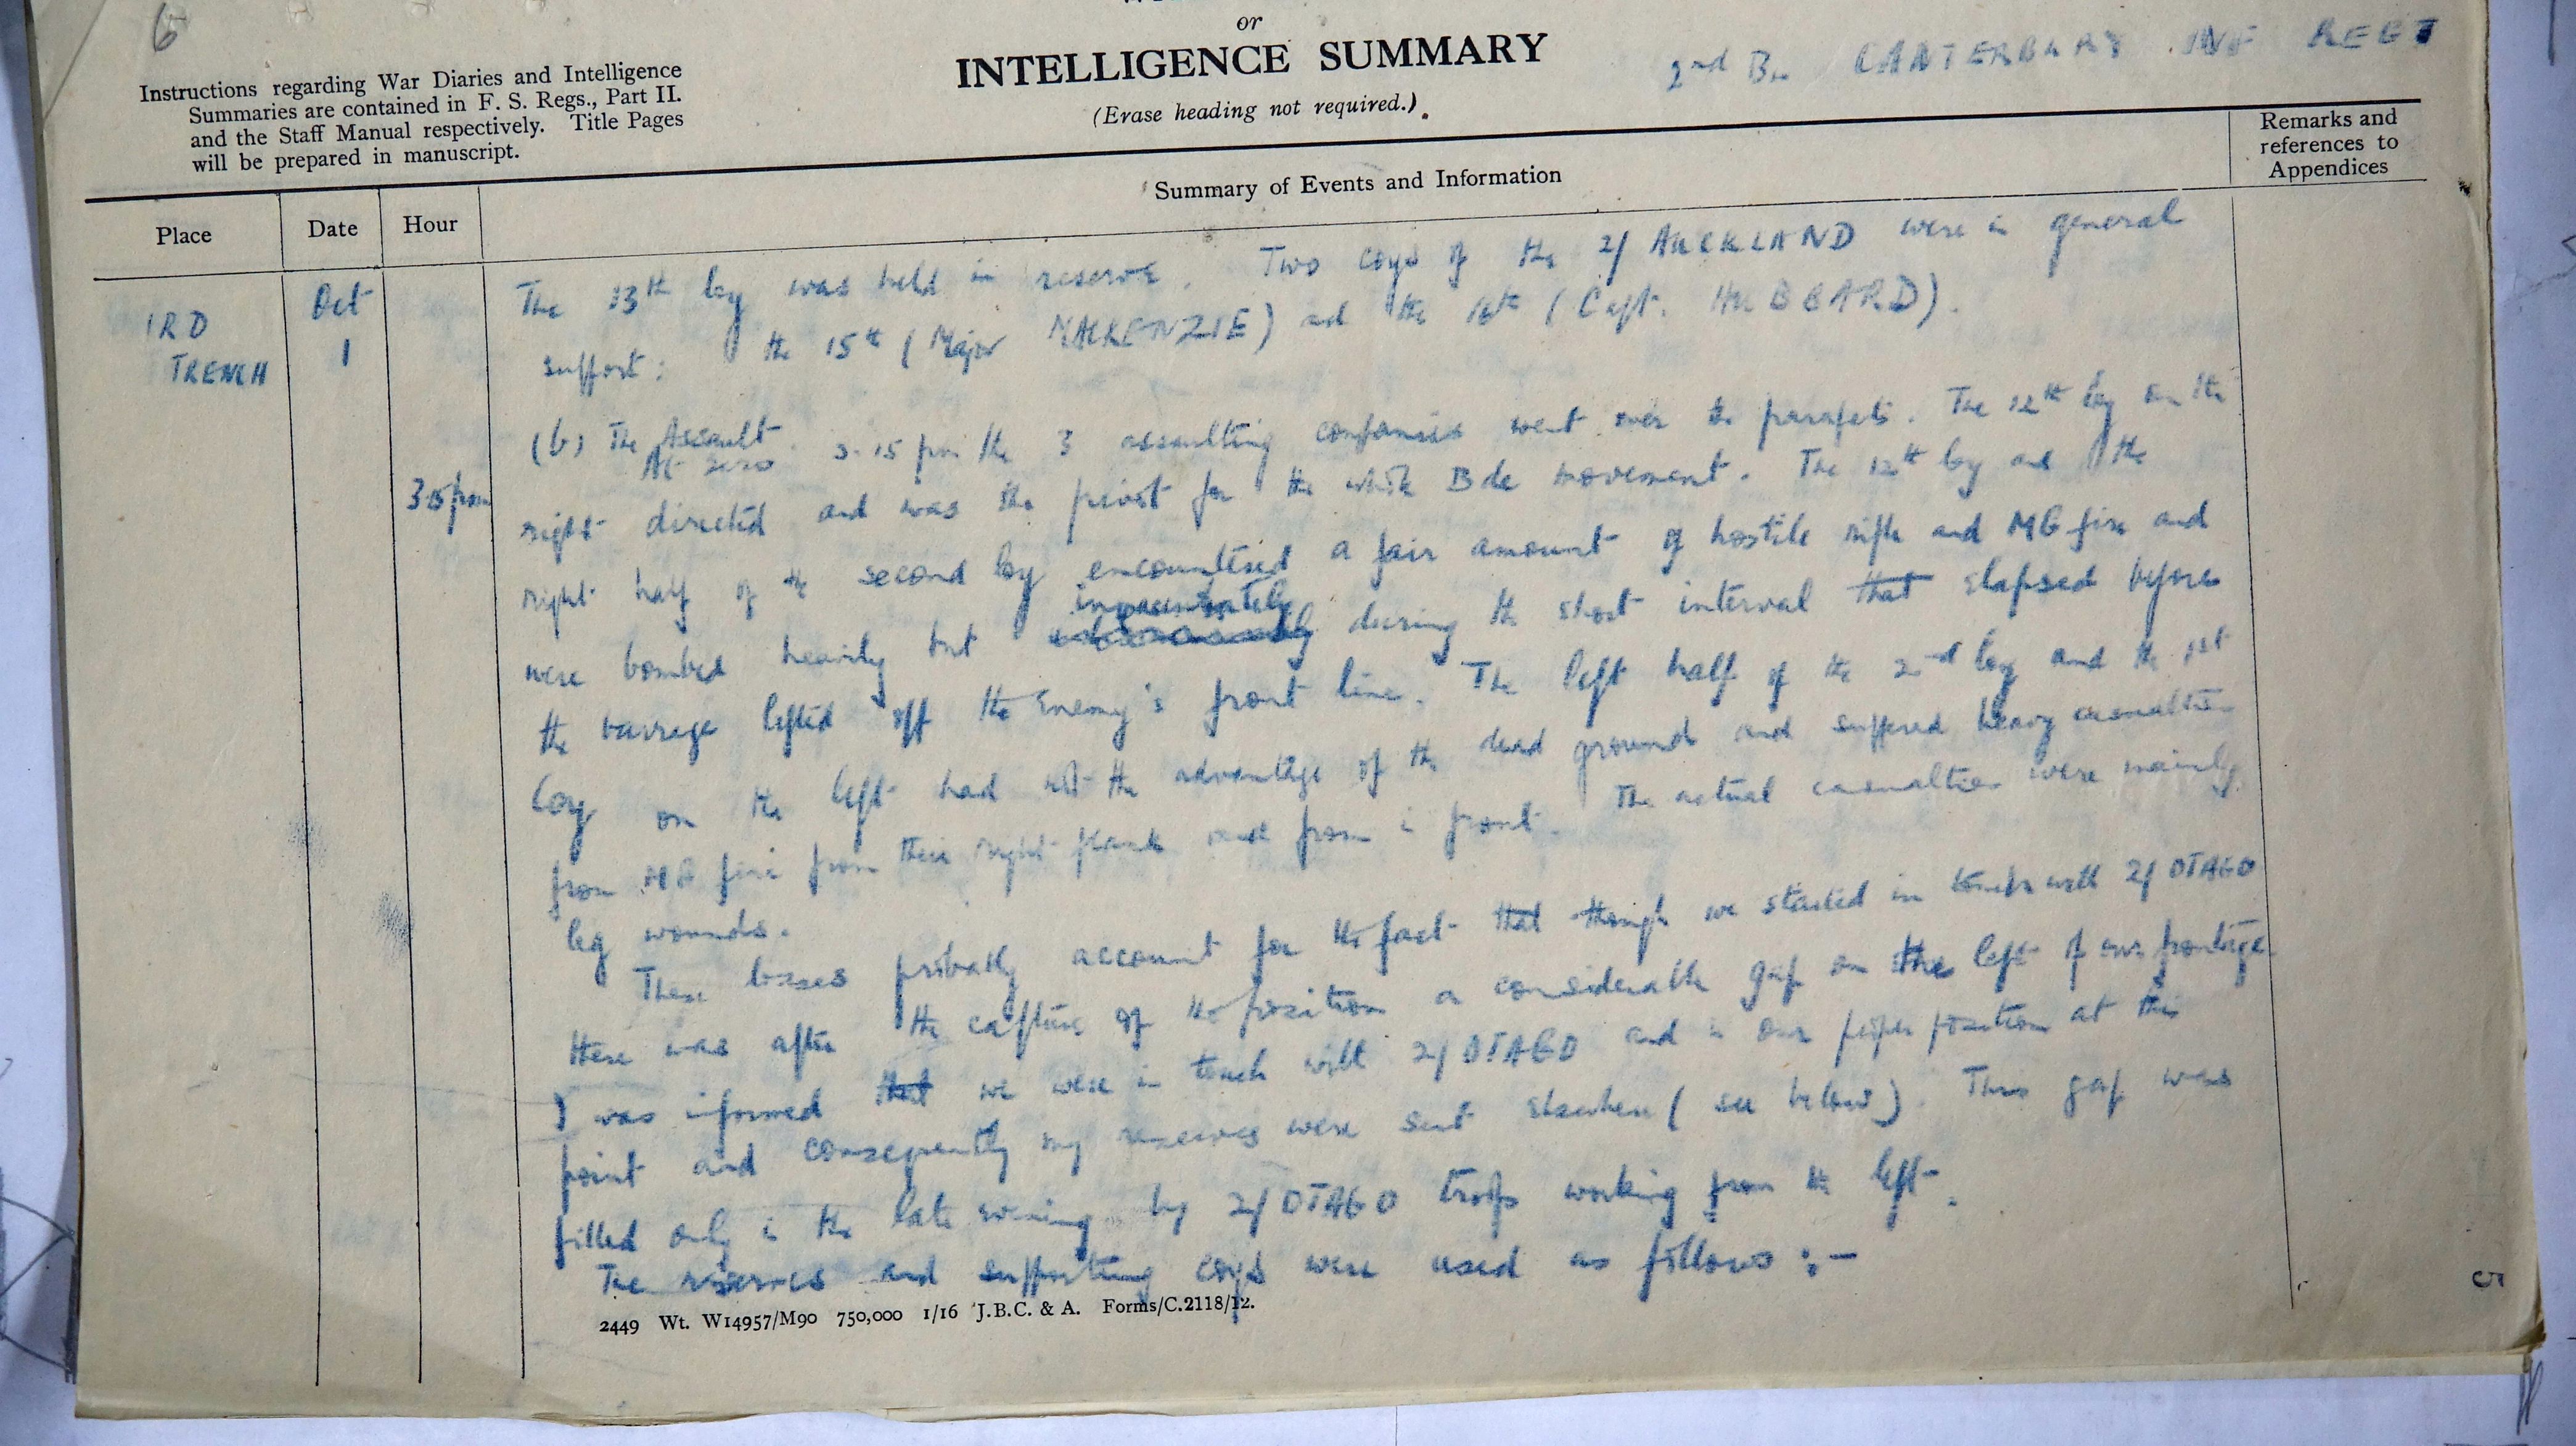 6
or
INTELLIGENCE SUMMARY
(Erase heading not required.)
2nd Bn CANTERBURY INF REGT
Instructions regarding War Diaries and Intelligence
Summaries are contained in F. S. Regs., Part II.
and the Staff Manual respectively. Title Pages
will be prepared in manuscript.
Place
Date
Hour
Summary of Events and Information
Remarks and
references to
Appendices
IRD
TRENCH
Oct
1
The 13th Coy was held in reserve. Two coys of the 2/ AUCKLAND were in general
support: the 15th (Major MACKENZIE) and the 16th (Capt. HUBBARD).
(b) The Assault.
At zero 3.15 pm the 3 assaulting companies went over the parapets. The 12th Coy on the
3.15 pm
right directed and was the pivot for the whole Bde movement. The 12th Coy and the
right half of the second Coy encountered a fair amount of hostile rifle and MG fire and
were bombed heavily but inaccurately during the short interval that elapsed before
the barrage lifted off the Enemy's front line. The left half of the 2nd Coy and the 1st
Coy on the left had not the advantage of the dead ground and suffered heavy casualties
from MG fire from their right flank and from in front. The actual casualties were mainly
leg wounds.
These losses probably account for the fact that though we started in touch with 2/ OTAGO
there was after the capture of the position a considerable gap on the left of our frontage.
I was informed that we were in touch with 2/ OTAGO and in our proper position at this
point and consequently my reserves were sent elsewhere (see below). This gap was
filled only in the late evening by 2/ OTAGO troops working from the left.
The reserves and supporting coys were used as follows :-
2449 Wt. W14957/M90 750,000 1/16 J.B.C. & A. Forms/C.2118/12.